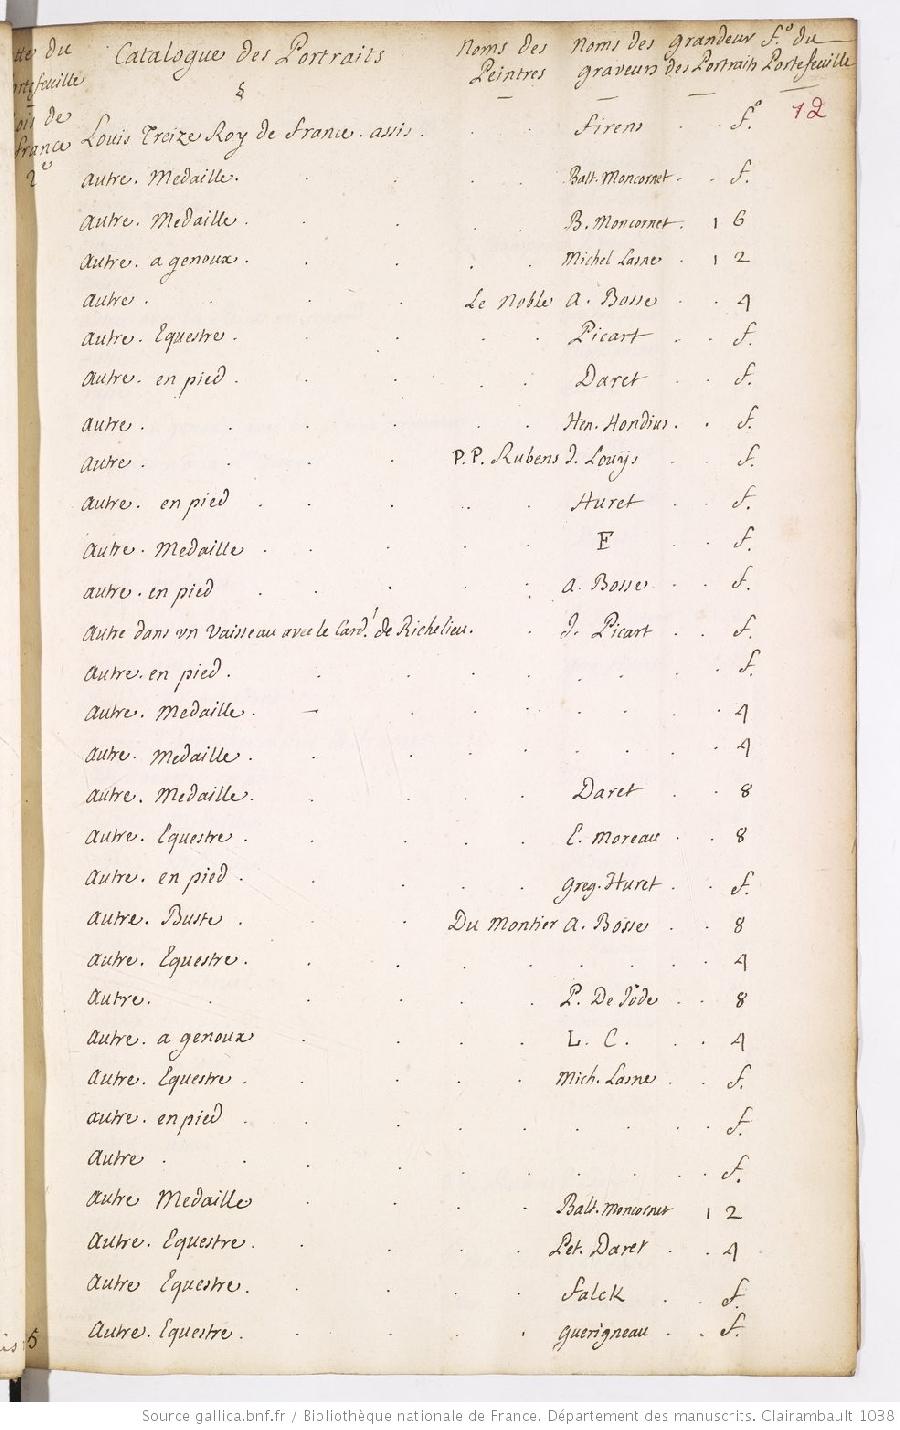 Catalogue des Portraits Noms des Peintres Noms des graveurs grandeur des Portraits f.º du Portefeuille
12
Louis Treize Roy de france. assis. firens f.º
autre. Medaille. Balt. Moncornet. f.
autre. Medaille. B. Moncornet. 16
autre. a genoux. Michel Lasne 12
autre. Le Noble A. Bosse 4
autre. Equestre. Picart f.
autre. en pied. Daret f.
autre. Hen. Hondius. f.
autre. P. P. Rubens J. Louijs f.
autre. en pied Huret f.
autre. Medaille F f.
autre. en pied A. Bosse f.
autre dans un Vaisseau avec le Card.l de Richelieu. J. Picart f.
autre. en pied. f.
autre. Medaille. 4
autre. Medaille. 4
autre. Medaille. Daret 8
autre. Equestre. E. Moreau 8
autre. en pied. Greg. Huret f.
autre. Buste. Du Montier A. Bosse 8
autre. Equestre. 4
autre. P. De Jode 8
autre. a genoux L. C. 4
autre. Equestre. Mich. Lasne f.
autre. en pied f.
autre f.
autre Medaille Balt. Moncornet 12
autre. Equestre. Pet. Daret 4
autre Equestre. falck f.
autre. Equestre. Guerigneau f.
5
Source gallica.bnf.fr / Bibliothèque nationale de France. Département des manuscrits. Clairambault 1038